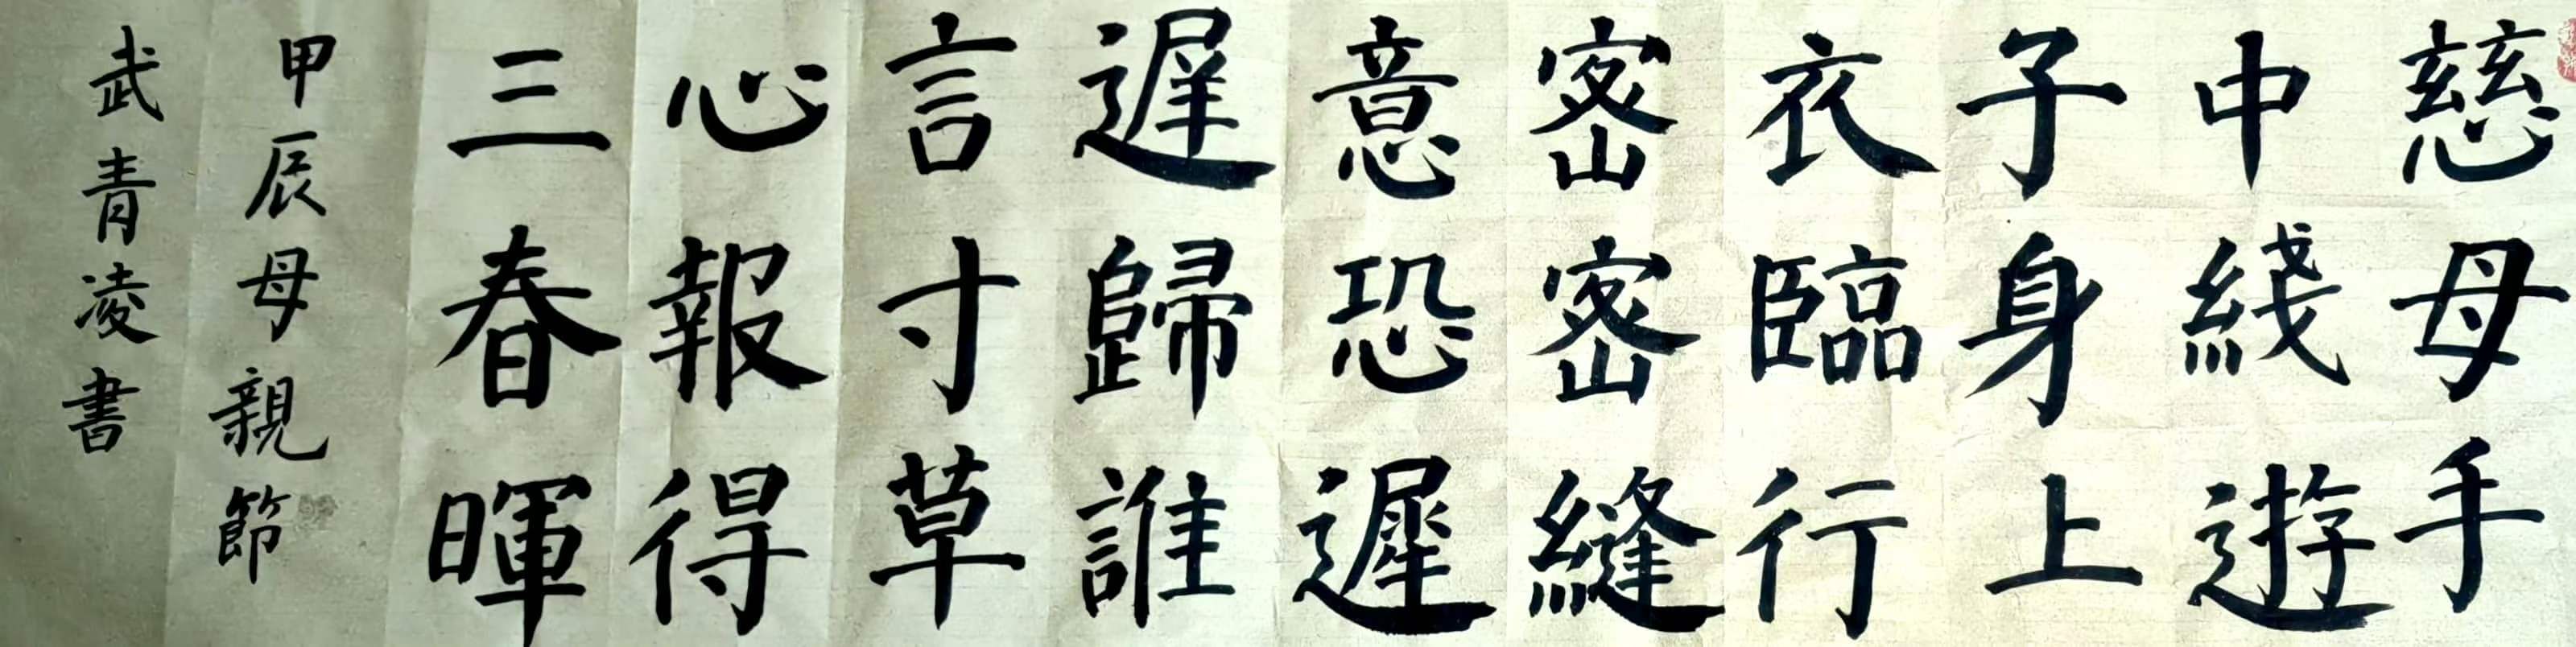 慈母手
中綫遊
子身上
衣臨行
密密縫
意恐遲
遲歸誰
言寸草
心報得
三春暉
甲辰母親節
武青凌書